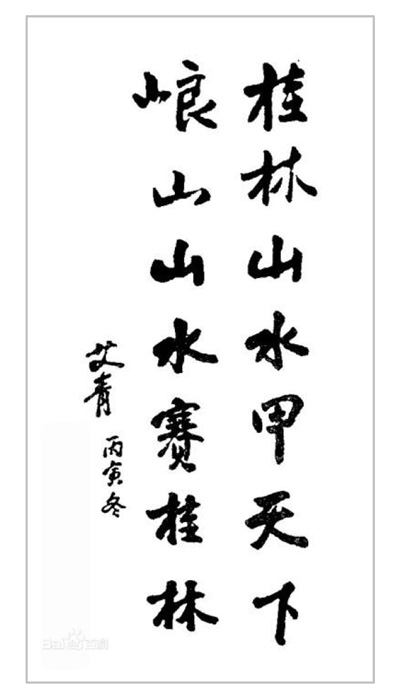 桂林山水甲天下
崀山山水赛桂林
艾青 丙寅冬
Baidu百科